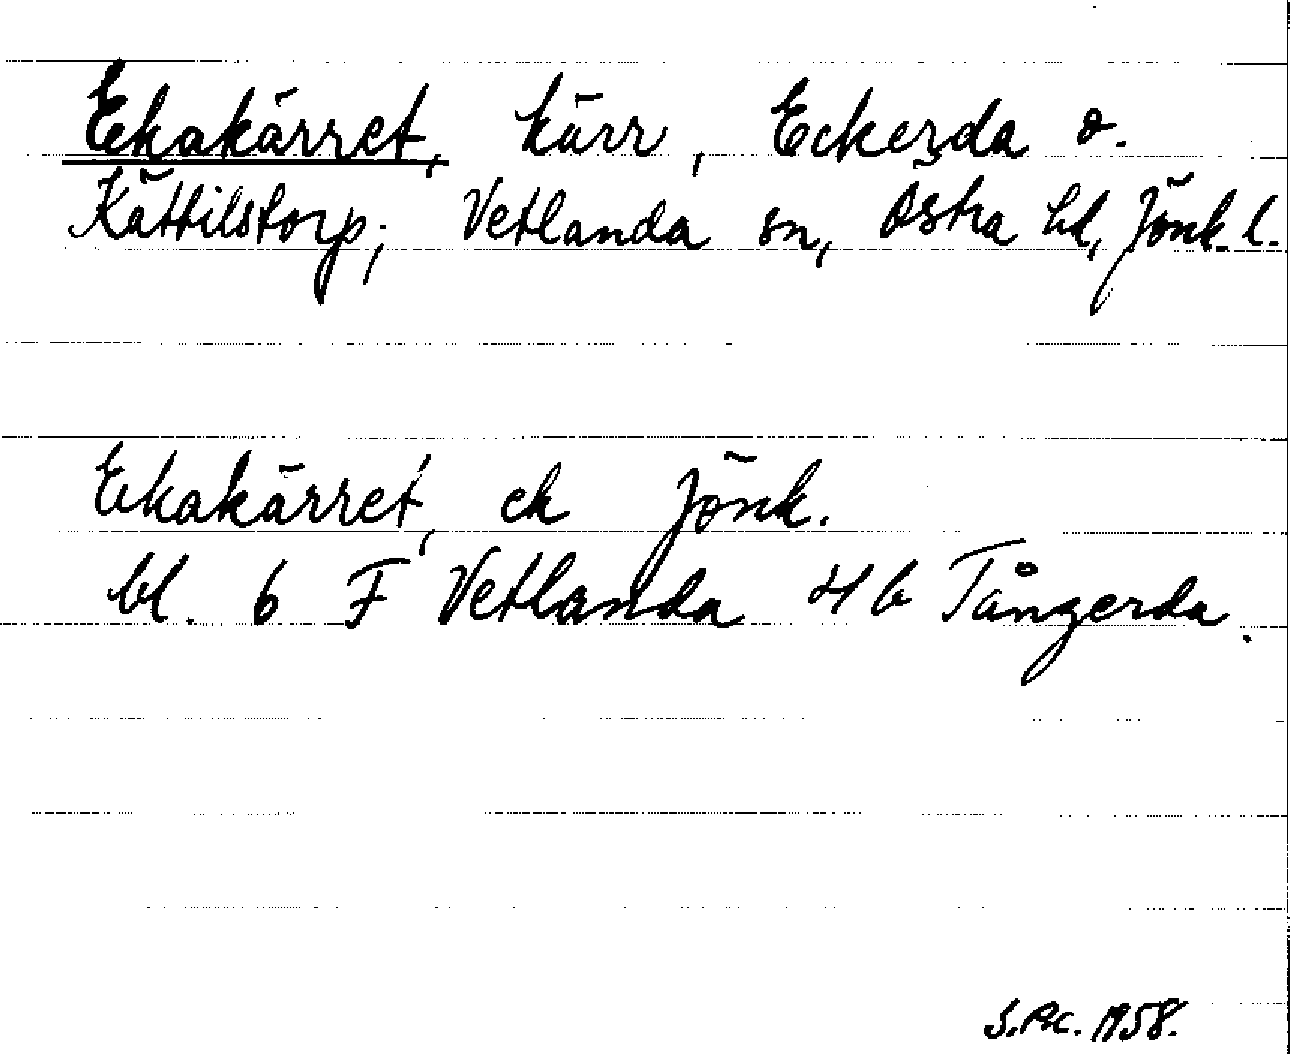 Ekakärret, kärr, Eckerda o.
Kättilstorp; Vetlanda sn, Östra hd, Jönk. l.
Ekakärret, ek Jönk.
bl. 6 F Vetlanda 4 b Tångerda.
1958.